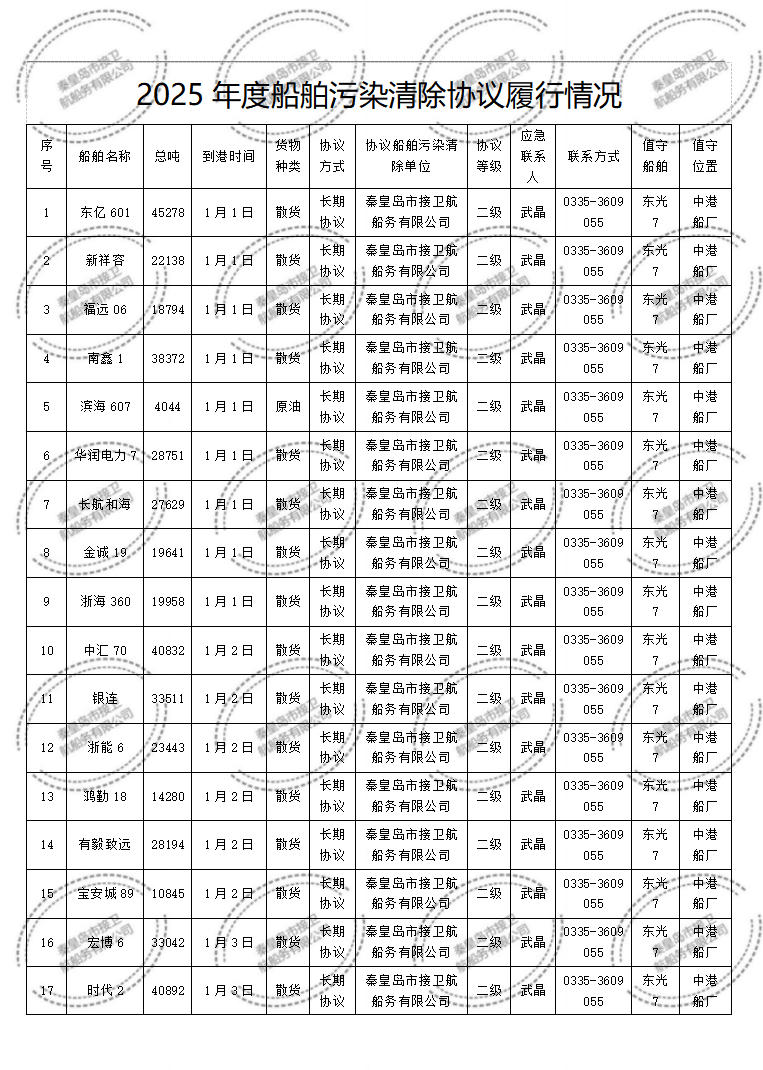 2025 年度船舶污染清除协议履行情况
序号 船舶名称 总吨 到港时间 货物种类 协议方式 协议船舶污染清除单位 协议等级 应急联系人 联系方式 值守船舶 值守位置
1 东亿 601 45278 1 月 1 日 散货 长期协议 秦皇岛市接卫航船务有限公司 二级 武晶 0335-3609055 东光 7 中港船厂
2 新祥容 22138 1 月 1 日 散货 长期协议 秦皇岛市接卫航船务有限公司 二级 武晶 0335-3609055 东光 7 中港船厂
3 福远 06 18794 1 月 1 日 散货 长期协议 秦皇岛市接卫航船务有限公司 二级 武晶 0335-3609055 东光 7 中港船厂
4 南鑫 1 38372 1 月 1 日 散货 长期协议 秦皇岛市接卫航船务有限公司 二级 武晶 0335-3609055 东光 7 中港船厂
5 滨海 607 4044 1 月 1 日 原油 长期协议 秦皇岛市接卫航船务有限公司 二级 武晶 0335-3609055 东光 7 中港船厂
6 华润电力 7 28751 1 月 1 日 散货 长期协议 秦皇岛市接卫航船务有限公司 二级 武晶 0335-3609055 东光 7 中港船厂
7 长航和海 27629 1 月 1 日 散货 长期协议 秦皇岛市接卫航船务有限公司 二级 武晶 0335-3609055 东光 7 中港船厂
8 金诚 19 19641 1 月 1 日 散货 长期协议 秦皇岛市接卫航船务有限公司 二级 武晶 0335-3609055 东光 7 中港船厂
9 浙海 360 19958 1 月 1 日 散货 长期协议 秦皇岛市接卫航船务有限公司 二级 武晶 0335-3609055 东光 7 中港船厂
10 中汇 70 40832 1 月 2 日 散货 长期协议 秦皇岛市接卫航船务有限公司 二级 武晶 0335-3609055 东光 7 中港船厂
11 银连 33511 1 月 2 日 散货 长期协议 秦皇岛市接卫航船务有限公司 二级 武晶 0335-3609055 东光 7 中港船厂
12 浙能 6 23443 1 月 2 日 散货 长期协议 秦皇岛市接卫航船务有限公司 二级 武晶 0335-3609055 东光 7 中港船厂
13 鸿勤 18 14280 1 月 2 日 散货 长期协议 秦皇岛市接卫航船务有限公司 二级 武晶 0335-3609055 东光 7 中港船厂
14 有毅致远 28194 1 月 2 日 散货 长期协议 秦皇岛市接卫航船务有限公司 二级 武晶 0335-3609055 东光 7 中港船厂
15 宝安城 89 10845 1 月 2 日 散货 长期协议 秦皇岛市接卫航船务有限公司 二级 武晶 0335-3609055 东光 7 中港船厂
16 宏博 6 33042 1 月 3 日 散货 长期协议 秦皇岛市接卫航船务有限公司 二级 武晶 0335-3609055 东光 7 中港船厂
17 时代 2 40892 1 月 3 日 散货 长期协议 秦皇岛市接卫航船务有限公司 二级 武晶 0335-3609055 东光 7 中港船厂
秦皇岛市接卫
航船务有限公司